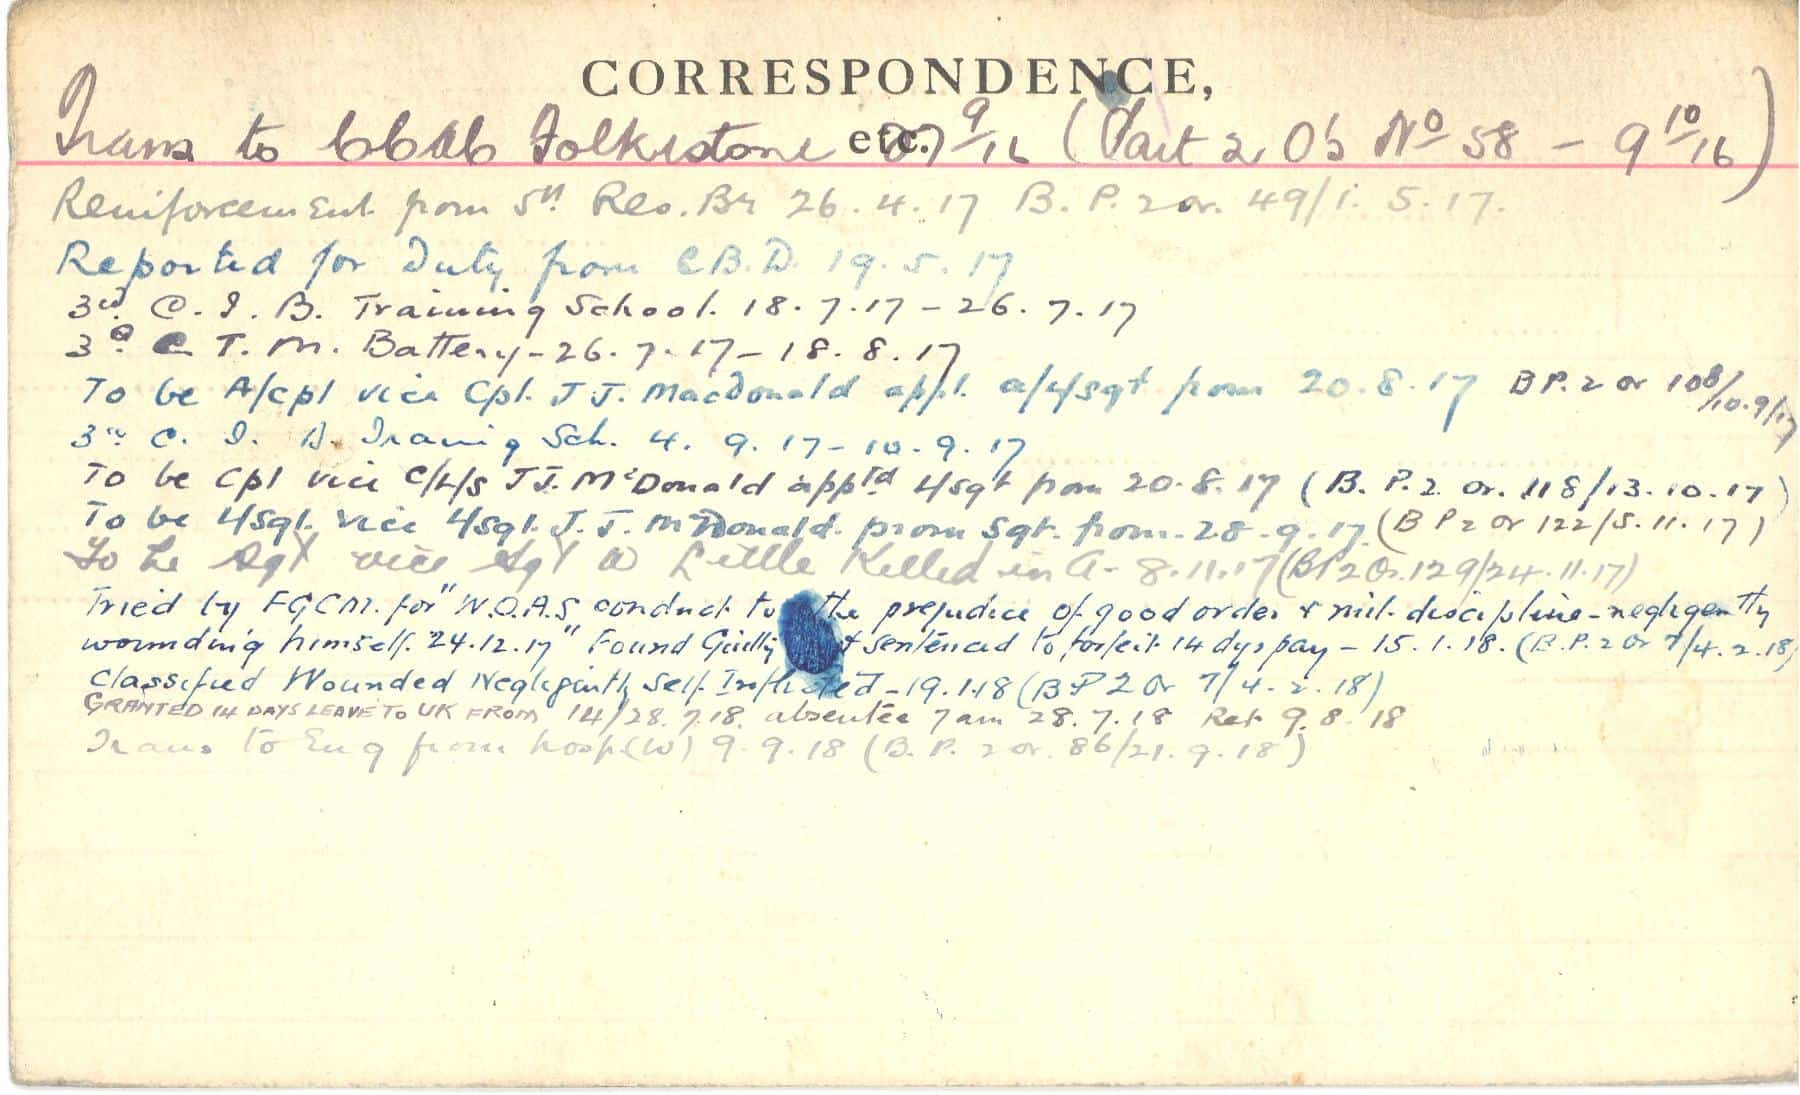 CORRESPONDENCE,
etc.
Trans to CCAC Folkestone 27 9/16 (Part 2 O's No 58 - 9 10/16)
Reinforcement from 5th Res. Bn 26.4.17 B.P.2 or. 49/1.5.17.
Reported for Duty from C.B.D. 19.5.17
3rd C.I.B. Training School. 18.7.17 - 26.7.17
3rd C.T.M. Battery - 26.7.17 - 18.8.17
To be A/Cpl vice Cpl. J.J. MacDonald appt. a/L/Sgt from 20.8.17 B.P.2 or 108/10.9/17
3rd C.I.B. Training Sch. 4.9.17 - 10.9.17
To be Cpl vice C/L/S J.J. McDonald apptd L/Sgt from 20.8.17 (B.P.2 or. 118/13.10.17)
To be L/Sgt. vice L/Sgt. J.J. McDonald. prom Sgt. from. 28.9.17. (B P 2 or 122/5.11.17)
To be Sgt vice Sgt W Little Killed in A - 8.11.17 (BP2 Or. 129/24.11.17)
Tried by FGCM. for "W.O.A.S conduct to the prejudice of good order & mil. discipline - negligently
wounding himself. 24.12.17" Found Guilty & sentenced to forfeit 14 dys pay - 15.1.18. (B.P.2 Or 7/4.2.18)
Classified Wounded Negligently Self Inflicted - 19.1.18 (B P 2 Or 7/4.2.18)
GRANTED 14 DAYS LEAVE TO UK FROM 14/28.7.18. absentee 7am 28.7.18 Ret 9.8.18
Trans to Eng from hosp (W) 9.9.18 (B.P. 2 or. 86/21.9.18)